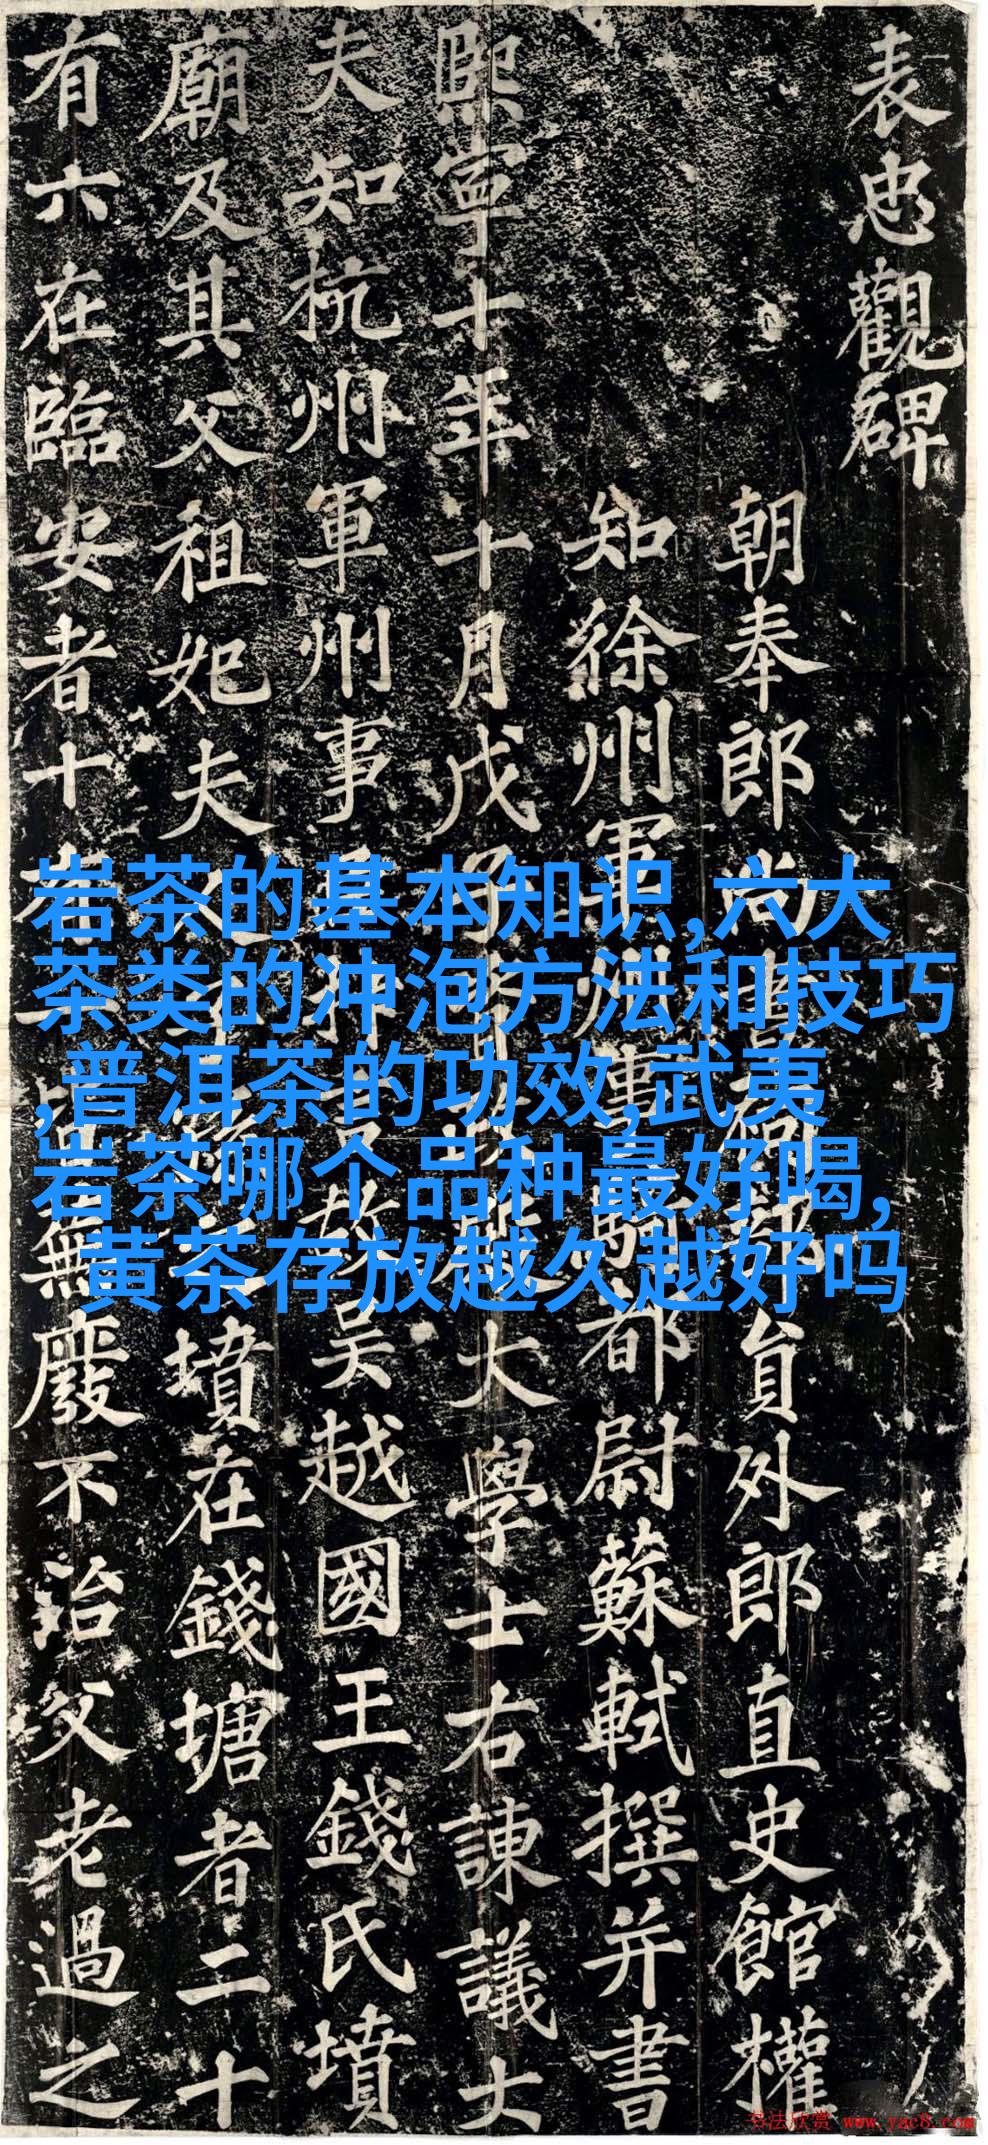 表忠觀碑
朝奉郎尚
員外郎直史館權
知徐州軍州
都尉蘇軾撰并書
熙寧十年十月戊子
大學士右諫議大
夫知杭州軍州事
吳越國王錢氏墳
廟及其父祖妃夫
墳在錢塘者二十
有六在臨安者十
蕪廢不治父老過之
岩茶的基本知识,六大
茶类的冲泡方法和技巧
,普洱茶的功效,武夷
岩茶哪个品种最好喝,
黄茶存放越久越好吗
书法欣赏 www.yac8.com